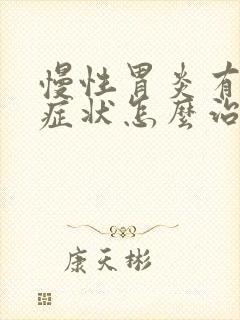 慢性胃炎有
症状怎麽治
康天彬